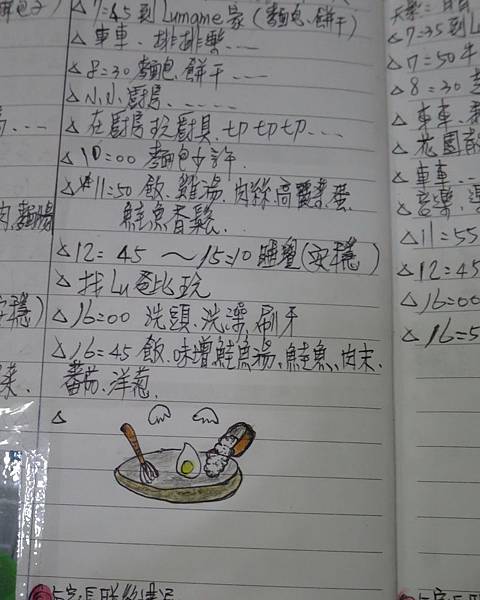 △7:45到Lumama家(麵包、餅干)
△車車、排排樂……
△8:30麵包、餅干……
△小小廚房……
△在廚房玩廚具、切切切……
△10:00麵包少許.
△11:50飯、雞湯、肉絲高麗菜、蛋、
鮭魚香鬆.
△12:45~15:10睡覺(安穩)
△找Lu爸比玩
△16:00洗頭、洗澡、刷牙
△16:45飯、味增鮭魚湯、鮭魚、肉末、
蕃茄、洋葱.
△
△7:35到
△7:50牛
△8:30
△車車、
△花園
△車車…
△音樂、
△11:55
△12:45
△16:00
△16:5